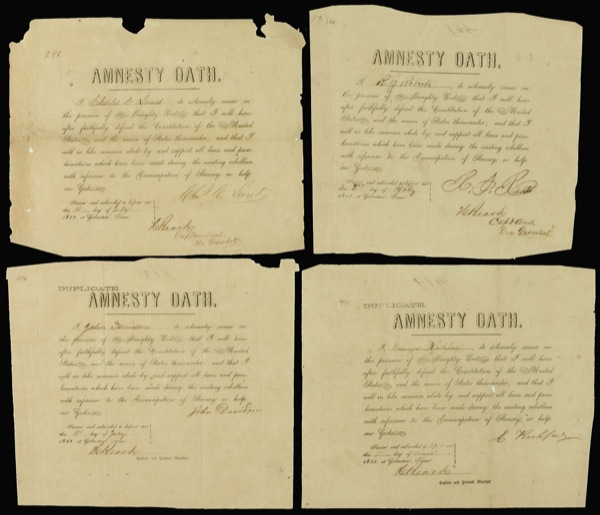 286
AMNESTY OATH.
I, Charles C. do solemnly swear in
the presence of Almighty God, that I will here-
after faithfully defend the Constitution of the United
States, and the union of States thereunder, and that I
will in like manner abide by and support all laws and proc-
lamations which have been made during the existing rebellion
with reference to the Emancipation of Slavery, so help
me God.
Sworn and subscribed to before me
this day of July
1865, at Galveston, Texas
AMNESTY OATH.
I, do solemnly swear in
the presence of Almighty God, that I will here-
after faithfully defend the Constitution of the United
States, and the union of States thereunder, and that I
will in like manner abide by and support all laws and proc-
lamations which have been made during the existing rebellion
with reference to the Emancipation of Slavery, so help
me God.
Sworn and subscribed to before me
this day of July
1865, at Galveston, Texas
DUPLICATE.
AMNESTY OATH.
I, John Davidson do solemnly swear in
the presence of Almighty God, that I will here-
after faithfully defend the Constitution of the United
States, and the union of States thereunder, and that I
will in like manner abide by and support all laws and proc-
lamations which have been made during the existing rebellion
with reference to the Emancipation of Slavery, so help
me God.
John Davidson
Sworn and subscribed to before me
this day of July
1865, at Galveston, Texas
Captain and Provost Marshal
DUPLICATE.
AMNESTY OATH.
I, do solemnly swear in
the presence of Almighty God, that I will here-
after faithfully defend the Constitution of the United
States, and the union of States thereunder, and that I
will in like manner abide by and support all laws and proc-
lamations which have been made during the existing rebellion
with reference to the Emancipation of Slavery, so help
me God.
Sworn and subscribed to before me
this day of August
1865, at Galveston, Texas
Captain and Provost Marshal